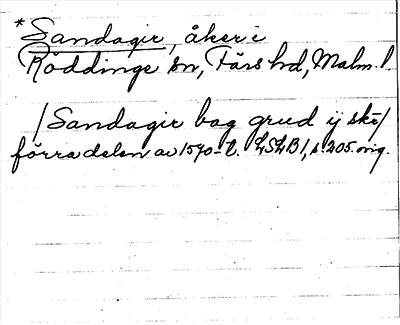 *Sandagir, åker i
Röddinge sn, Färs hd, Malm. l.
/Sandagir bag grud ij skē/
förra delen av 1570-t. LSLB 1, s. 205. orig.